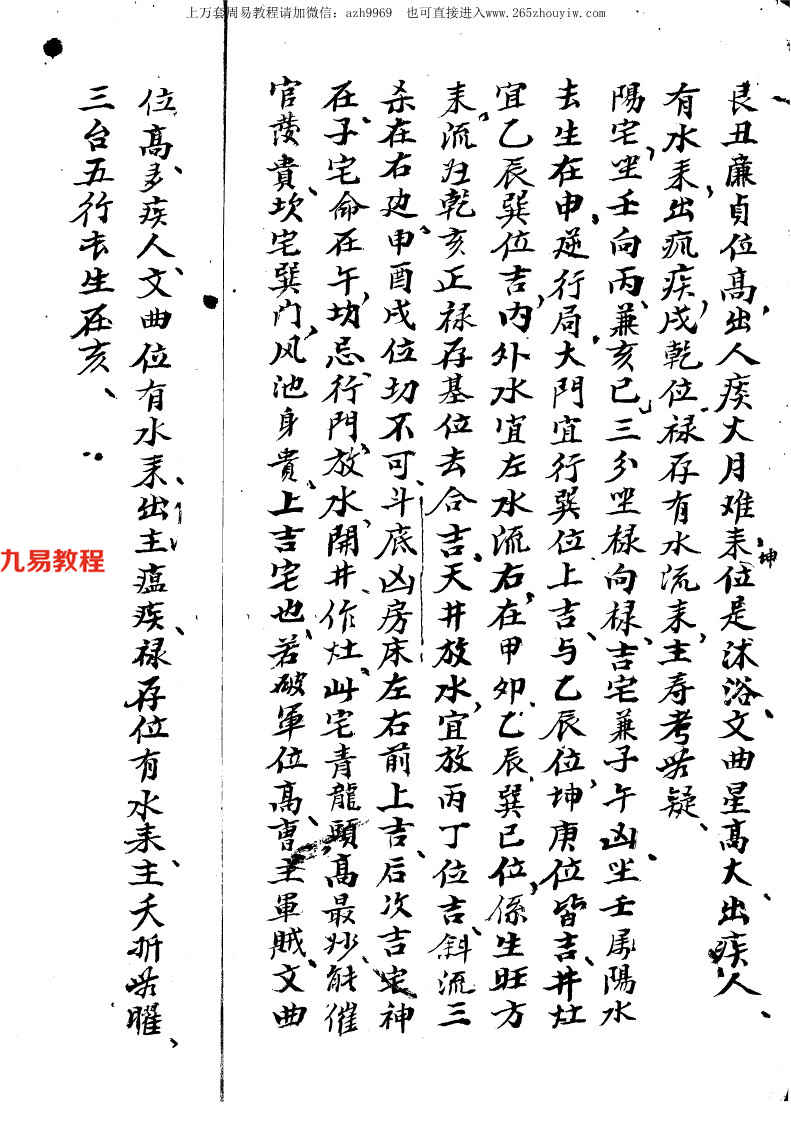 上万套周易教程请加微信：azh9969　也可直接进入www.265zhouyiw.com
艮丑廉貞位高、出人瘼大月难耒位是沭浴、文曲星高大、出疾人、
坤
有水耒、出疯疾、戌乾位禄存有水流耒、主寿考㒵疑、
陽宅、坐壬向丙、兼亥巳三分坐禄向禄、吉宅兼子午凶、坐壬属陽水
去生在申、逆行局、大門宜行巽位上吉、与乙辰位、坤庚位皆吉、井灶
宜乙辰巽位吉、内外水宜左水流右、在甲卯乙辰巽巳位、係生旺方
耒、流归乾亥正禄存基位去合吉、天井放水、宜放丙丁位吉、斜流三
杀在右边、申酉戌位切不可、斗底凶房床左右前上吉、后次吉、宅神
在子、宅命在午、切忌、行門、放水、開井、作灶、此宅青龍頭高最妙、能催
官发貴、坎宅巽门、风池身貴、上吉宅也、若破軍位高、曹主軍賊、文曲
位高、多疾人、文曲位有水耒、出主瘟疾、禄存位有水耒、主夭折㒵曜、
三台五行长生在亥、
九易教程